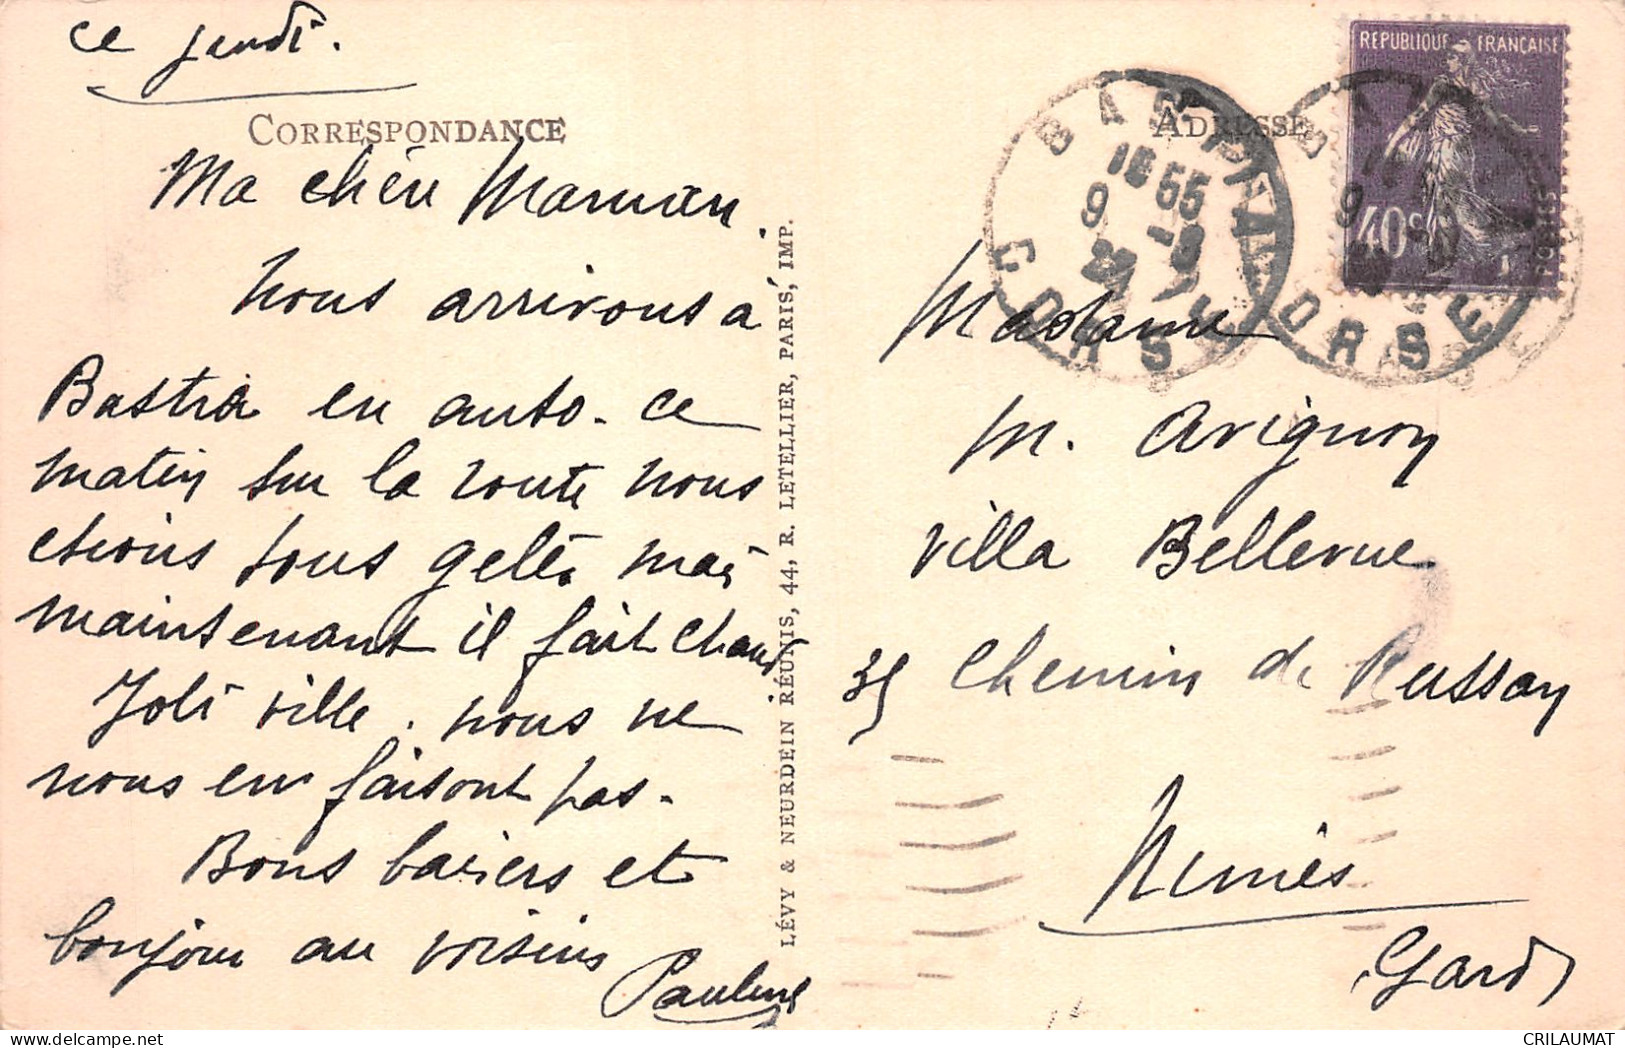 ce jeudi.
CORRESPONDANCE
Ma chère Maman.
Nous arrivons à
Bastia en auto. ce
matin sur la route nous
etions tous gelés mais
maintenant il fait chaud
Joli ville. nous ne
nous en faisont pas.
Bons baisers et
bonjour au voisins
Pauline
LÉVY & NEURDEIN RÉUNIS, 44, R. LETELLIER, PARIS, IMP.
ADRESSE
REPUBLIQUE FRANÇAISE
40c
POSTES
BASTIA
16 55
9
CORSE
BAS
9
CORSE
Madame
M. Avignon
Villa Bellevue
35 Chemin de Russan
Nimes
Gard
CRILAUMAT